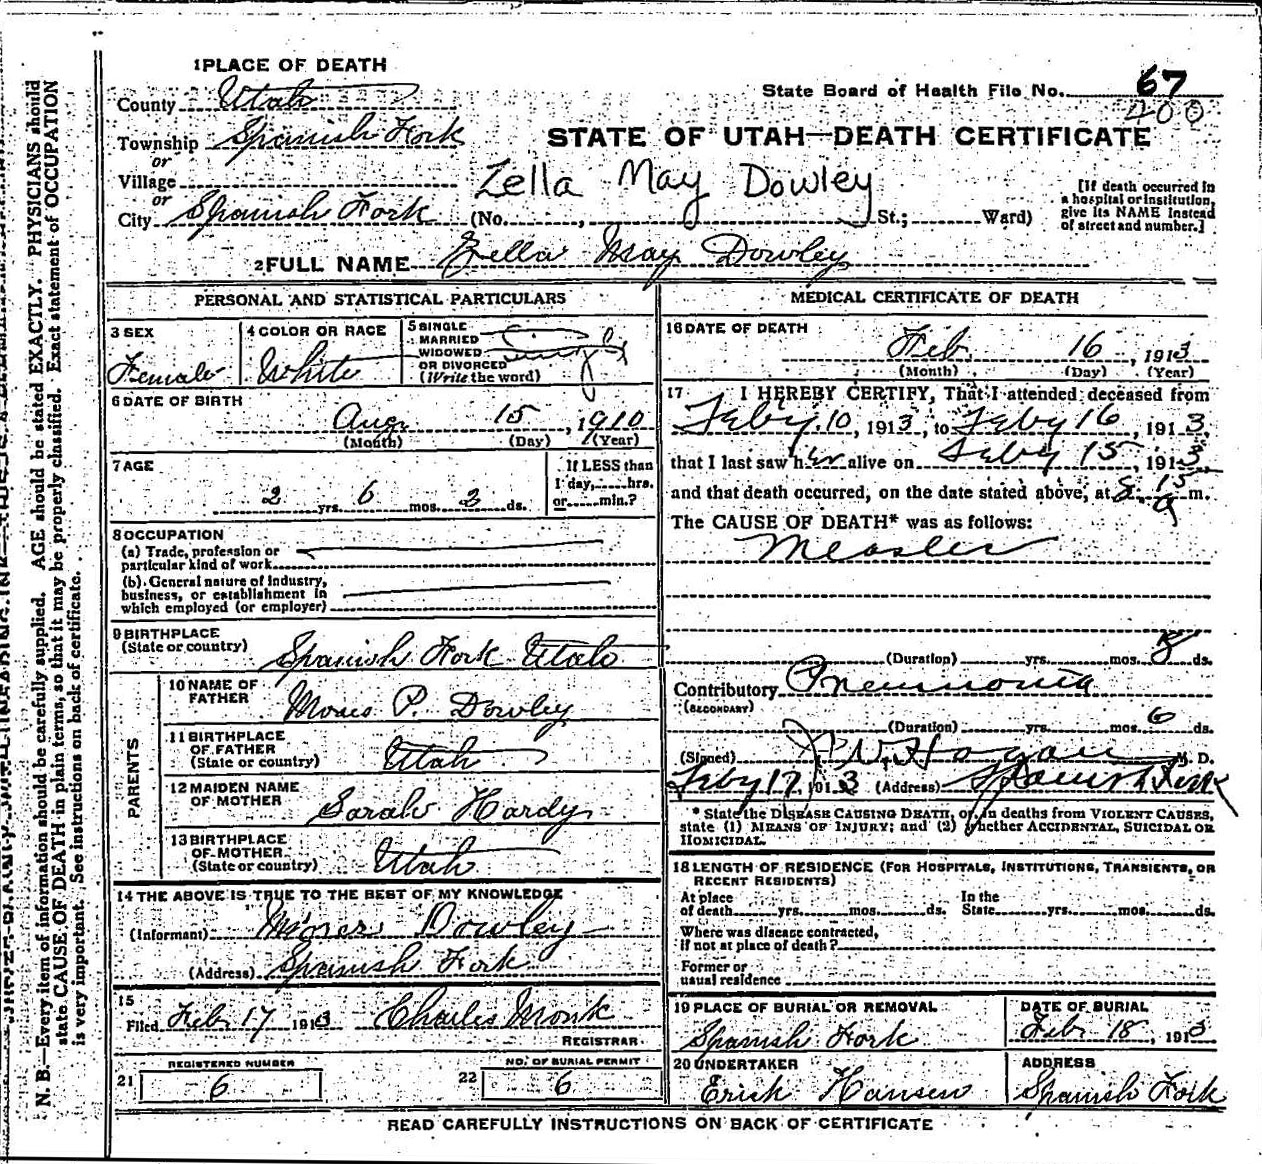 1 PLACE OF DEATH
County Utah
State Board of Health File No. 67
400
Township Spanish Fork
or
Village
or
City Spanish Fork
STATE OF UTAH—DEATH CERTIFICATE
Zella May Dowley
(No. , St.; Ward)
[If death occurred in
a hospital or institution,
give its NAME instead
of street and number.]
2 FULL NAME Zella May Dowley
PERSONAL AND STATISTICAL PARTICULARS
3 SEX
Female
4 COLOR OR RACE
White
5 SINGLE
MARRIED
WIDOWED
OR DIVORCED
(Write the word)
Single
6 DATE OF BIRTH
Aug 15, 1910
(Month) (Day) (Year)
7 AGE
2 yrs. 6 mos. 2 ds.
If LESS than
1 day, hrs.
or min.?
8 OCCUPATION
(a) Trade, profession or
particular kind of work
(b) General nature of industry,
business, or establishment in
which employed (or employer)
9 BIRTHPLACE
(State or country) Spanish Fork Utah
PARENTS
10 NAME OF
FATHER Moses P. Dowley
11 BIRTHPLACE
OF FATHER
(State or country) Utah
12 MAIDEN NAME
OF MOTHER Sarah Hardy
13 BIRTHPLACE
OF MOTHER
(State or country) Utah
14 THE ABOVE IS TRUE TO THE BEST OF MY KNOWLEDGE
(Informant) Moses Dowley
(Address) Spanish Fork
15
Filed Feb 17 1913 Charles Monk
REGISTRAR
REGISTERED NUMBER
21 6
NO. OF BURIAL PERMIT
22 6
MEDICAL CERTIFICATE OF DEATH
16 DATE OF DEATH
Feb. 16, 1913
(Month) (Day) (Year)
17 I HEREBY CERTIFY, That I attended deceased from
Feby. 10, 1913, to Feby 16, 1913,
that I last saw her alive on Feby 15, 1913,
and that death occurred, on the date stated above, at 8 15 a m.
The CAUSE OF DEATH* was as follows:
Measles
(Duration) yrs. mos. 8 ds.
Contributory Pneumonia
(SECONDARY)
(Duration) yrs. mos. 6 ds.
(Signed) J. W. Hogan M. D.
Feby 17, 1913 (Address) Spanish Fork
* State the DISEASE CAUSING DEATH, or, in deaths from VIOLENT CAUSES,
state (1) MEANS OF INJURY; and (2) whether ACCIDENTAL, SUICIDAL OR
HOMICIDAL.
18 LENGTH OF RESIDENCE (FOR HOSPITALS, INSTITUTIONS, TRANSIENTS, OR
RECENT RESIDENTS)
At place
of death yrs. mos. ds.
In the
State yrs. mos. ds.
Where was disease contracted,
if not at place of death?
Former or
usual residence
19 PLACE OF BURIAL OR REMOVAL
Spanish Fork
DATE OF BURIAL
Feb 18, 1913
20 UNDERTAKER
Erick Hansen
ADDRESS
Spanish Fork
READ CAREFULLY INSTRUCTIONS ON BACK OF CERTIFICATE
N. B.—Every item of information should be carefully supplied. AGE should be stated EXACTLY. PHYSICIANS should
state CAUSE OF DEATH in plain terms, so that it may be properly classified. Exact statement of OCCUPATION
is very important. See instructions on back of certificate.